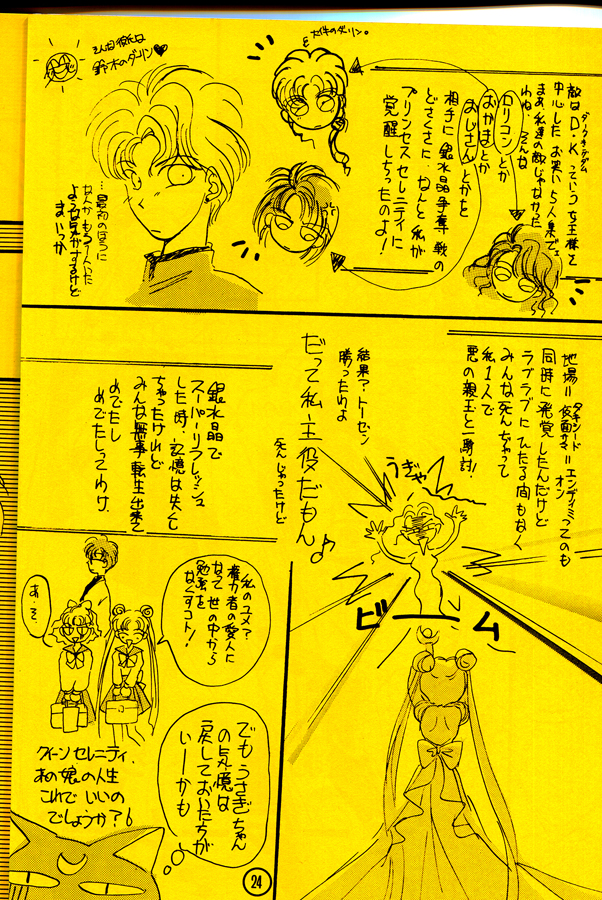 敵はD・Kっていう女王様と
ダークキングダム
中心した、お笑い5人集で、
まあ、私達の敵じゃなかった
わね、そんな
ロリコンとか
おかまとか
おじさんとかを
相手に銀水晶争奪戦の
どさくさに、なんと私が
プリンセスセレニティに
覚醒しちったのよ!
そんな彼氏は
鈴木のダーリン♥
…最初のほうに
なんかもう1人いた
ような気がするけど
まいっか
地場=仮面様=エンディミオン
タキシード
ってのも
同時に発覚したんだけど
ラブラブにひたる間もなく
みんな死んちゃって
私1人で
悪の親玉と一騎討!
結果?トーゼン
勝ったわよ
だって私主役だもん♪
死んじゃったけど
うぎゃ
ビーム
銀水晶で
スーパーリフレッシュ
した時、記憶は失くし
ちゃったけれど
みんな無事転生出来て
めでたし
めでたしってわけ。
私のユメ?
権力者の愛人に
なって世の中から
勉強を
なくすコト!
あ…そ
でもうさぎちゃん
の記憶は
戻しておいたちが
いーかも
クイーンセレニティ、
あの娘の人生
これでいいの
でしょうか?
24